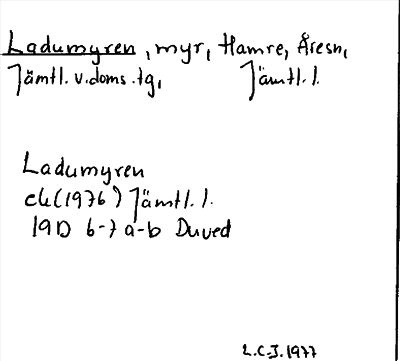 Ladumyren, myr, Hamre, Åresn,
Jämtl. v. doms. tg, Jämtl. l.
Ladumyren
ek (1976) Jämtl. l.
19D 6-7 a-b Duved
L.C-J. 1977